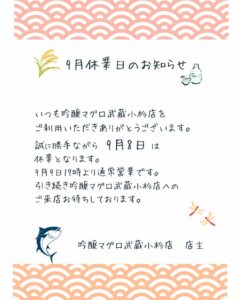 9月休業日のお知らせ
いつも吟醸マグロ武蔵小杉店を
ご利用いただきありがとうございます。
誠に勝手ながら 9月8日 は
休業となります。
9月9日17時より通常営業です。
引き続き吟醸マグロ武蔵小杉店への
ご来店お待ちしております。
吟醸マグロ武蔵小杉店 店主